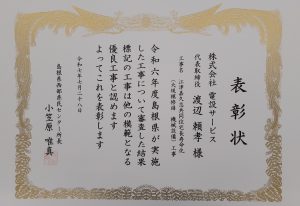 表彰状
株式会社 電設サービス
代表取締役 渡辺 頼孝 様
令和六年度島根県が実施
した工事について審査した結果
標記の工事は他の模範となる
優良工事と認めます
よってこれを表彰します
令和七年七月二十八日
島根県西部県民センター所長
小笠原 唯真